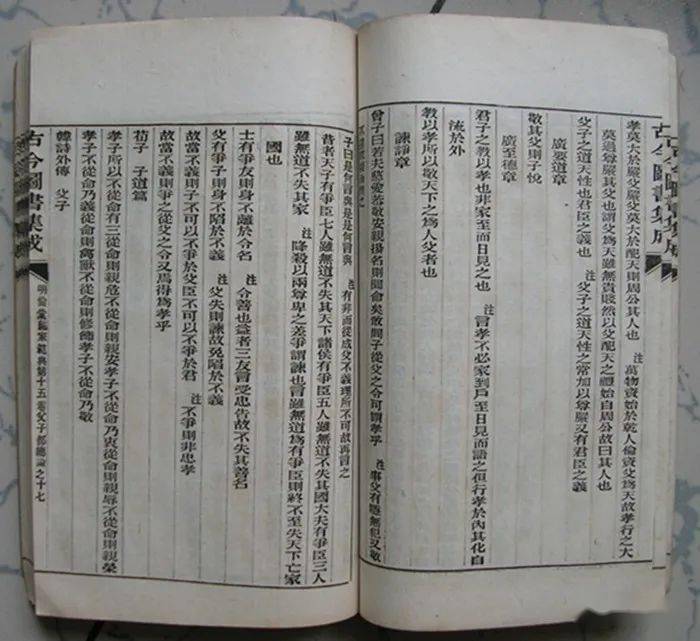 古今圖書集成
孝莫大於嚴父嚴父莫大於配天則周公其人也　注　萬物資始於乾人倫資父為天故孝行之大
莫過尊嚴其父也雖無貴賤然以父配天之禮始自周公故曰其人也
父子之道天性也君臣之義也　注　父子之道天性之常加以尊嚴又有君臣之義
廣要道章
敬其父則子悅
廣至德章
君子之教以孝也非家至而日見之也　注　言孝不必家到戶至日見而語之但行孝於內其化自
流於外
教以孝所以敬天下之為人父者也
諫諍章
曾子曰若夫慈愛恭敬安親揚名則聞命矣敢問子從父之令可謂孝乎　注　事父有隱無犯又敬
子曰是何言與是何言與　注　有非而從成父不義理所不可故再言之
昔者天子有爭臣七人雖無道不失其天下諸侯有爭臣五人雖無道不失其國大夫有爭臣三人
雖無道不失其家　注　降殺以兩尊卑之差爭謂諫也言雖無道為有爭臣則終不至失天下亡家
國也
士有爭友則身不離於令名　注　令善也益者三友言受忠告故不失其善名
父有爭子則身不陷於不義　注　父失則諫故免陷於不義
故當不義則子不可以不爭於父臣不可以不爭於君　注　不爭則非忠孝
故當不義則爭之從父之令又焉得為孝乎
荀子　子道篇
孝子所以不從命有三從命則親危不從命則親安孝子不從命乃衷從命則親辱不從命則親榮
孝子不從命乃義從命則禽獸不從命則修飾孝子不從命乃敬
韓詩外傳　父子
古今圖書集成
明倫彙編家範典第十五卷父子部總論之十七